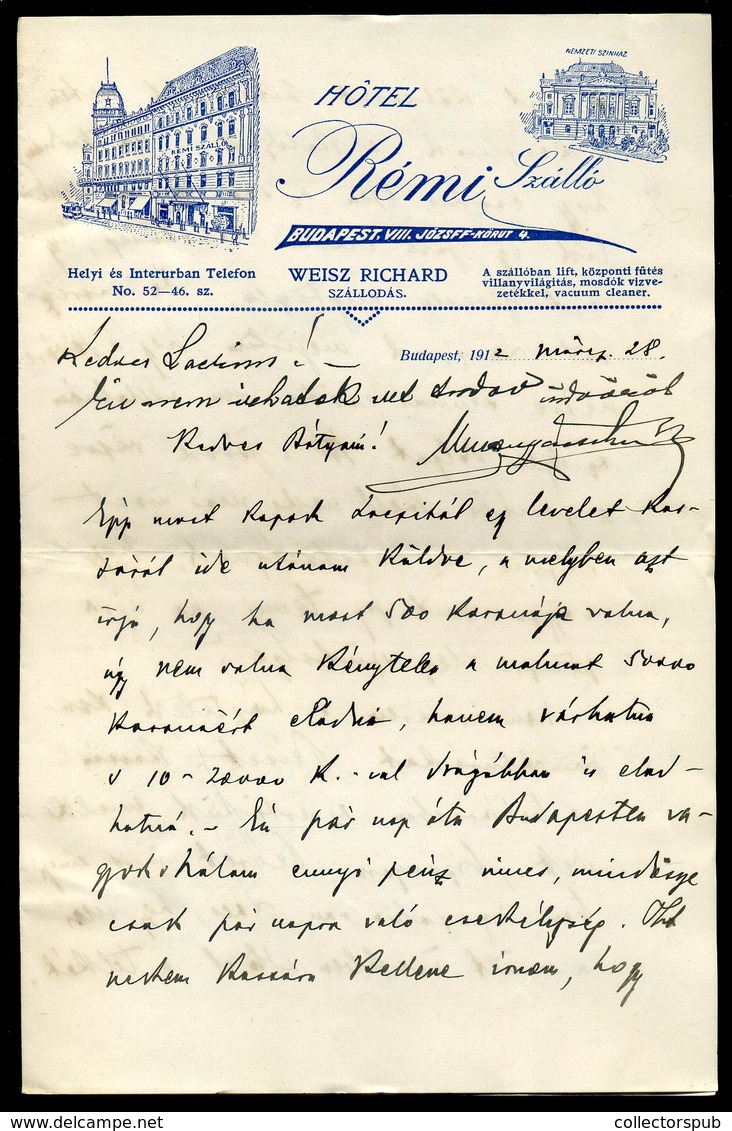 NEMZETI SZINHÁZ
HÔTEL
RÉMI SZÁLLÓ
Rémi Szálló
BUDAPEST, VIII. JÓZSEF-KÖRUT 4.
Helyi és Interurban Telefon
No. 52—46. sz.
WEISZ RICHARD
SZÁLLODÁS.
A szállóban lift, központi fütés
villanyvilágitás, mosdók vizve-
zetékkel, vacuum cleaner.
Budapest, 1912 márcz. 28.
Kedves
Én nem
Kedves Bátyám!
Épp most kapok egy levelet Kas-
sáról ide utánam küldve, a melyben azt
irja, hogy ha most 500 koronája volna,
úgy nem volna kénytelen a malmot 50000
koronáért eladni, hanem várhatna
s 10-20000 K.-val drágábban is elad-
hatná. - Én pár nap óta Budapesten va-
gyok s nálam ennyi pénz nincs, mindössze
csak pár napra való csekélység. Itt
nekem Kassára kellene irnom, hogy
collectorspub